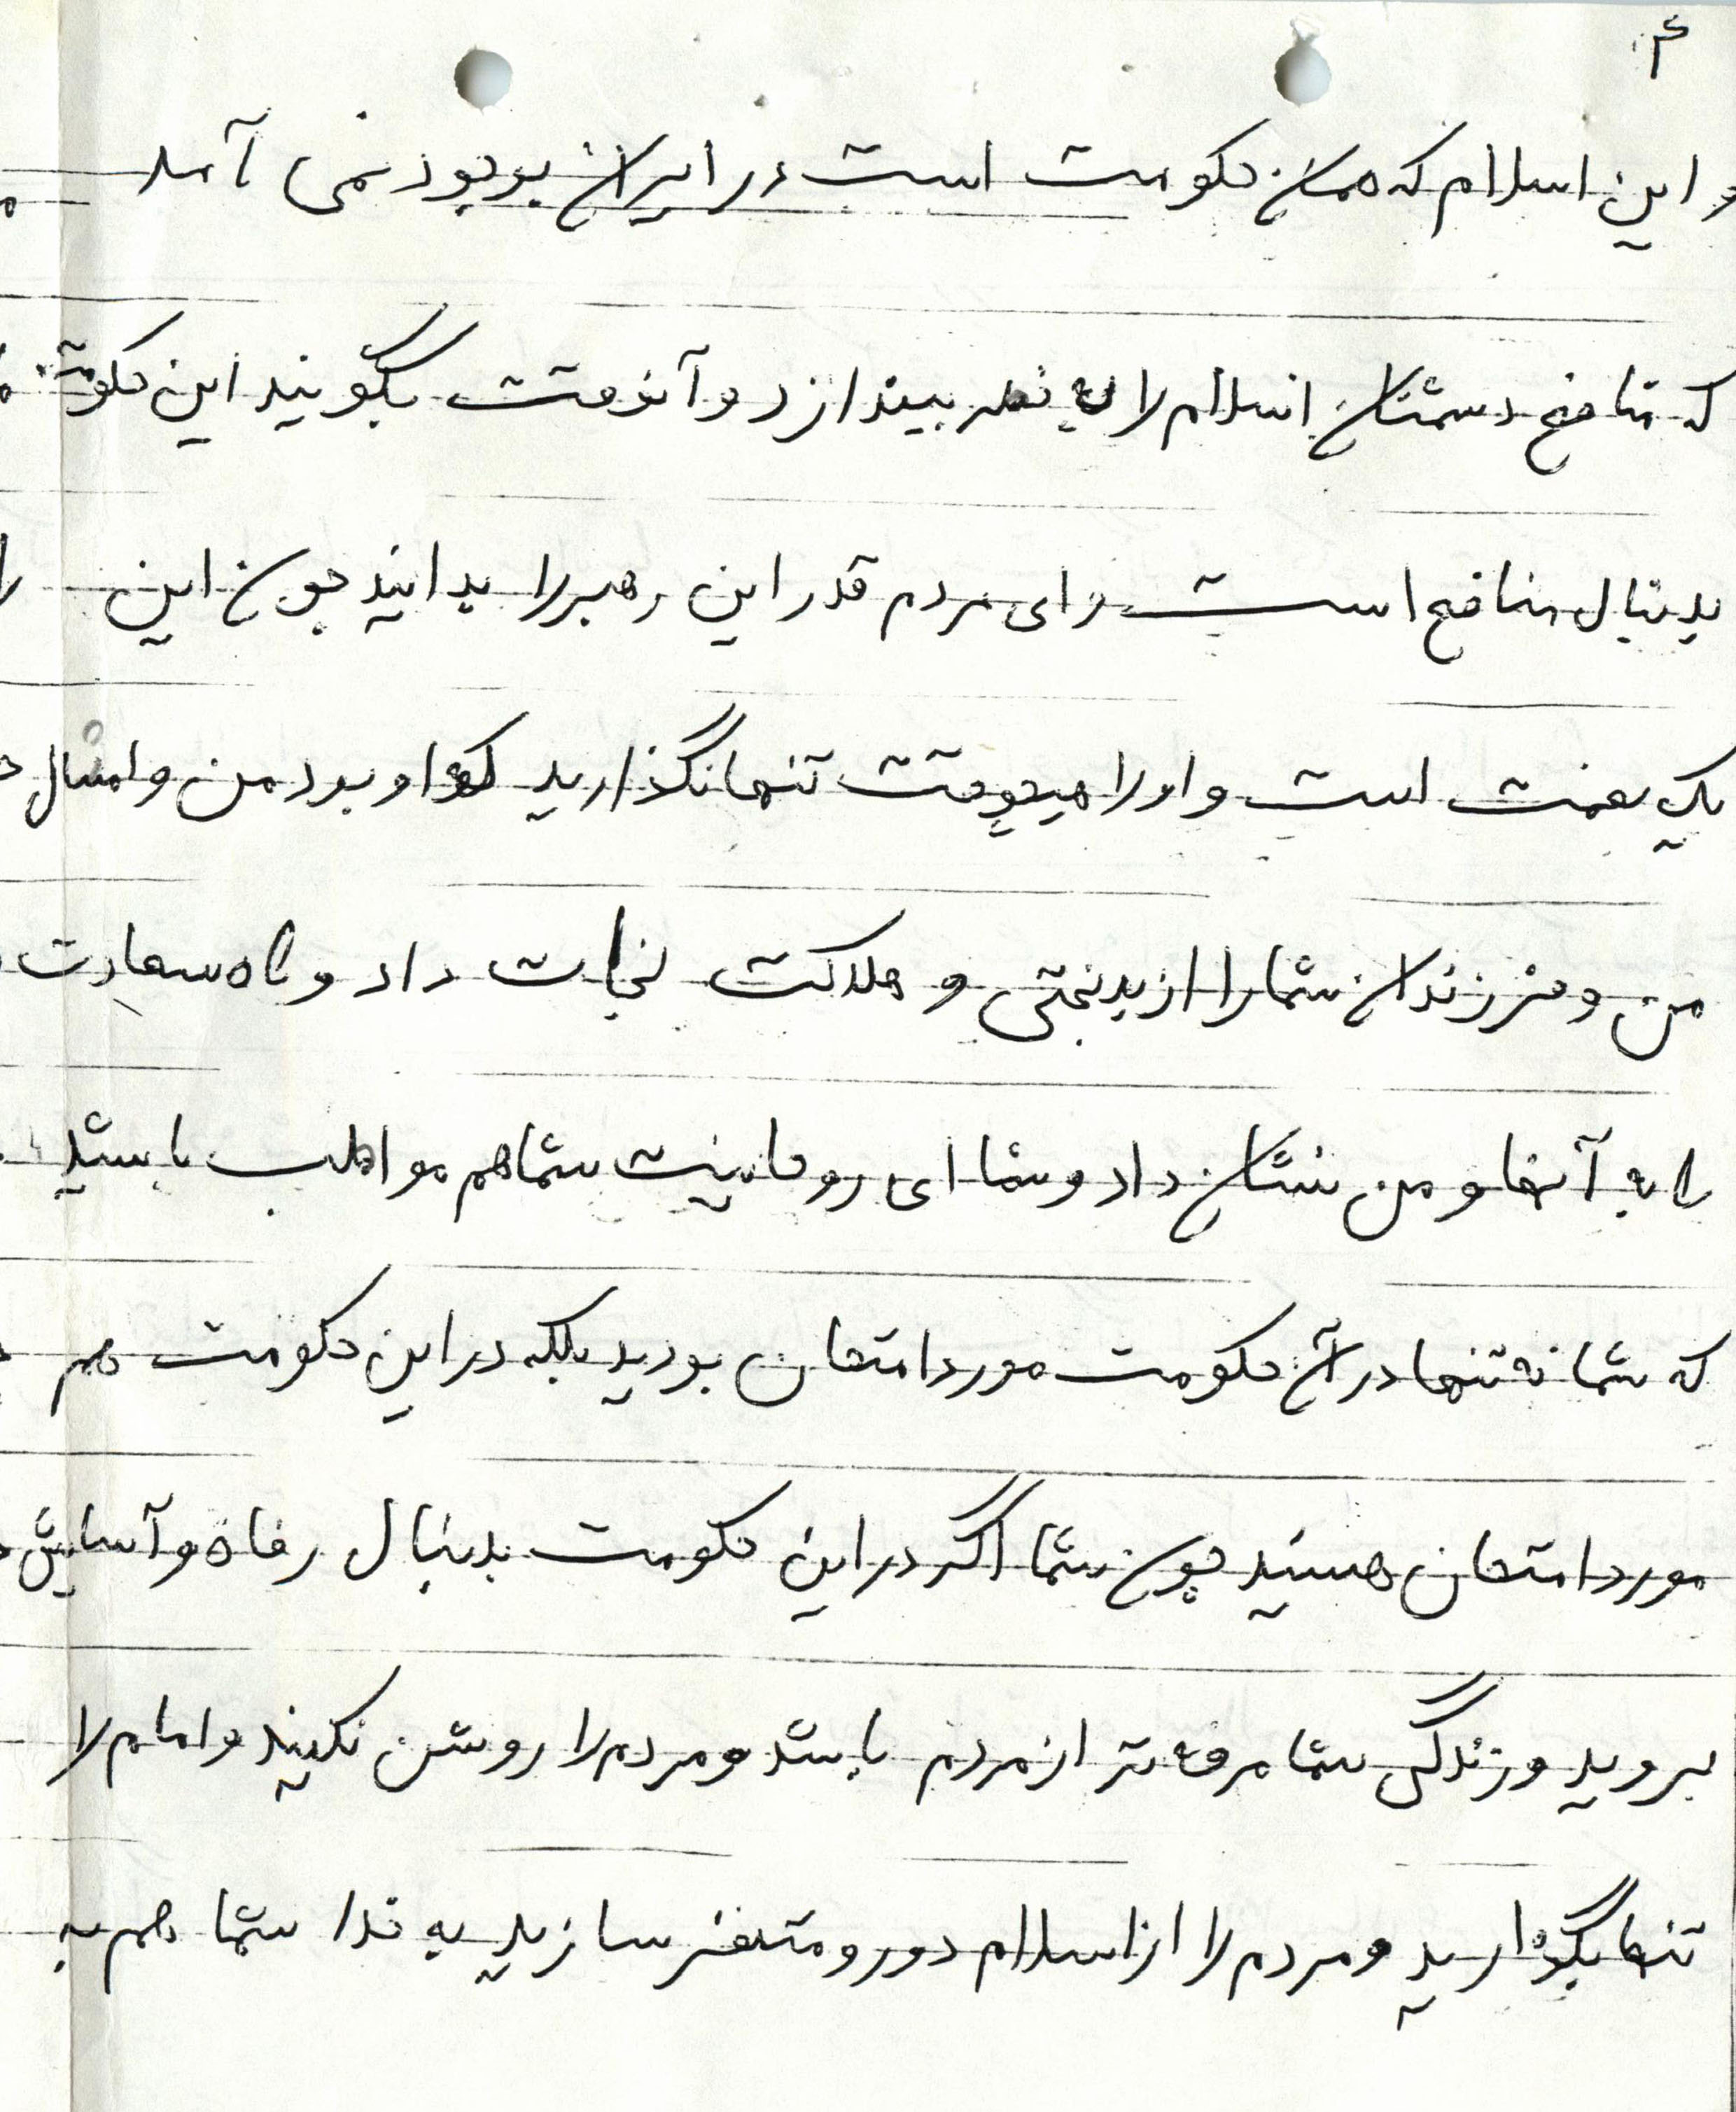 ۴
و این اسلام که همان حکومت است در ایران بوجود نمی آمد
که منافع دشمنان اسلام را به خطر بیندازد و آنوقت بگویند این حکومت
بدنبال منافع است و ای مردم قدر این رهبر را بدانید چون این
یک نعمت است و او را هیچوقت تنها نگذارید که او بود من و امثال
من و فرزندان شما را از بدبختی و هلاکت نجات داد و راه سعادت
را به آنها و من نشان داد و شما ای روحانیت شما هم مواظب باشید
که شما نه تنها در آن حکومت مورد امتحان بودید بلکه در این حکومت هم
مورد امتحان هستید چون شما اگر در این حکومت بدنبال رفاه و آسایش
بروید و زندگی شما مرفه تر از مردم باشد و مردم را روشن نکنید و امام را
تنها بگذارید و مردم را از اسلام دور و متنفر سازید به خدا شما هم به